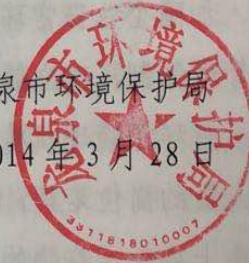 泉市环境保护局
014年3月28日
龙泉市环境保护局
3311818010007